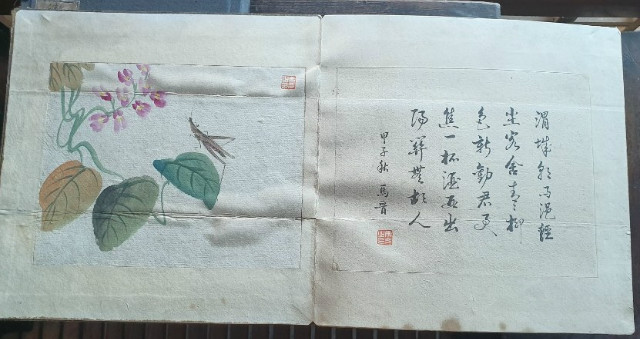 渭城朝雨浥輕
塵客舍青々柳
色新勸君更
盡一杯酒西出
陽關無故人
甲子秋 馬晉